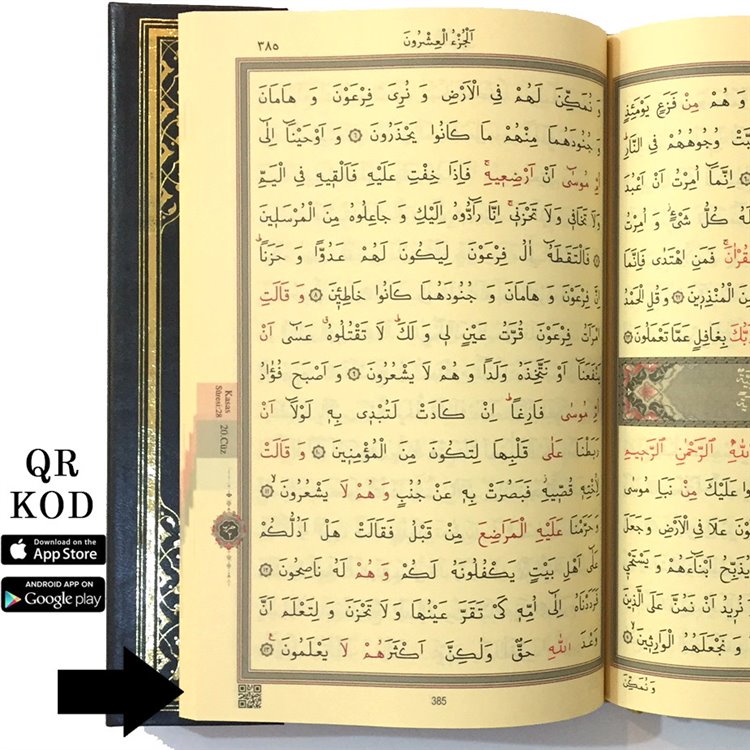 اَلْجُزْءُ الْعِشْرُونَ
٣٨٥
وَ هُمْ مِنْ فَزَعٍ يَوْمَئِذٍ
وُجُوهُهُمْ فِي النَّارِ
اِنَّمَٓا اُمِرْتُ اَنْ اَعْبُدَ
كُلُّ شَيْءٍ وَ اُمِرْتُ
فَمَنِ اهْتَدٰى فَاِنَّمَا
الْمُنْذِرِينَ ٩٢ وَقُلِ الْحَمْدُ
بِغَافِلٍ عَمَّا تَعْمَلُونَ ٩٣
اللّٰهِ الرَّحْمٰنِ الرَّحِيمِ
عَلَيْكَ مِنْ نَبَاِ مُوسٰى
عَلَا فِي الْاَرْضِ وَ جَعَلَ
يُذَبِّحُ اَبْنَٓاءَهُمْ وَ يَسْتَحْي۪
نُر۪يدُ اَنْ نَمُنَّ عَلَى الَّذ۪ينَ
وَ نَجْعَلَهُمُ الْوَارِث۪ينَ ٥
وَ نُمَكِّنَ
وَ نُمَكِّنَ لَهُمْ فِي الْاَرْضِ وَ نُرِيَ فِرْعَوْنَ وَ هَامَانَ
وَ جُنُودَهُمَا مِنْهُمْ مَا كَانُوا يَحْذَرُونَ ٦ وَ اَوْحَيْنَٓا اِلٰٓى
اُمِّ مُوسٰٓى اَنْ اَرْضِع۪يهِۚ فَاِذَا خِفْتِ عَلَيْهِ فَاَلْق۪يهِ فِي الْيَمِّ
وَلَا تَخَاف۪ي وَلَا تَحْزَن۪يۚ اِنَّا رَٓادُّوهُ اِلَيْكِ وَ جَاعِلُوهُ مِنَ الْمُرْسَل۪ينَ
٧ فَالْتَقَطَهُٓ اٰلُ فِرْعَوْنَ لِيَكُونَ لَهُمْ عَدُوًّا وَ حَزَنًاۜ
اِنَّ فِرْعَوْنَ وَ هَامَانَ وَ جُنُودَهُمَا كَانُوا خَاطِـ۪ٔينَ ٨ وَ قَالَتِ
امْرَاَتُ فِرْعَوْنَ قُرَّتُ عَيْنٍ ل۪ي وَ لَكَۜ لَا تَقْتُلُوهُۗ عَسٰٓى اَنْ
يَنْفَعَنَٓا اَوْ نَتَّخِذَهُ وَلَدًا وَ هُمْ لَا يَشْعُرُونَ ٩ وَ اَصْبَحَ فُؤَادُ
اُمِّ مُوسٰى فَارِغًاۜ اِنْ كَادَتْ لَتُبْد۪ي بِه۪ لَوْلَٓا اَنْ
رَبَطْنَا عَلٰى قَلْبِهَا لِتَكُونَ مِنَ الْمُؤْمِن۪ينَ ١٠ وَ قَالَتْ
لِاُخْتِه۪ قُصّ۪يهِۘ فَبَصُرَتْ بِه۪ عَنْ جُنُبٍ وَ هُمْ لَا يَشْعُرُونَۙ ١١
وَ حَرَّمْنَا عَلَيْهِ الْمَرَاضِعَ مِنْ قَبْلُ فَقَالَتْ هَلْ اَدُلُّكُمْ
عَلٰٓى اَهْلِ بَيْتٍ يَكْفُلُونَهُ لَكُمْ وَ هُمْ لَهُ نَاصِحُونَ ١٢
فَرَدَدْنَاهُ اِلٰٓى اُمِّه۪ كَيْ تَقَرَّ عَيْنُهَا وَ لَا تَحْزَنَ وَ لِتَعْلَمَ اَنَّ
وَعْدَ اللّٰهِ حَقٌّ وَلٰكِنَّ اَكْثَرَهُمْ لَا يَعْلَمُونَ۟ ١٣
385
Kasas
Sûresi:28
20.Cüz
QR
KOD
Download on the
App Store
ANDROID APP ON
Google play